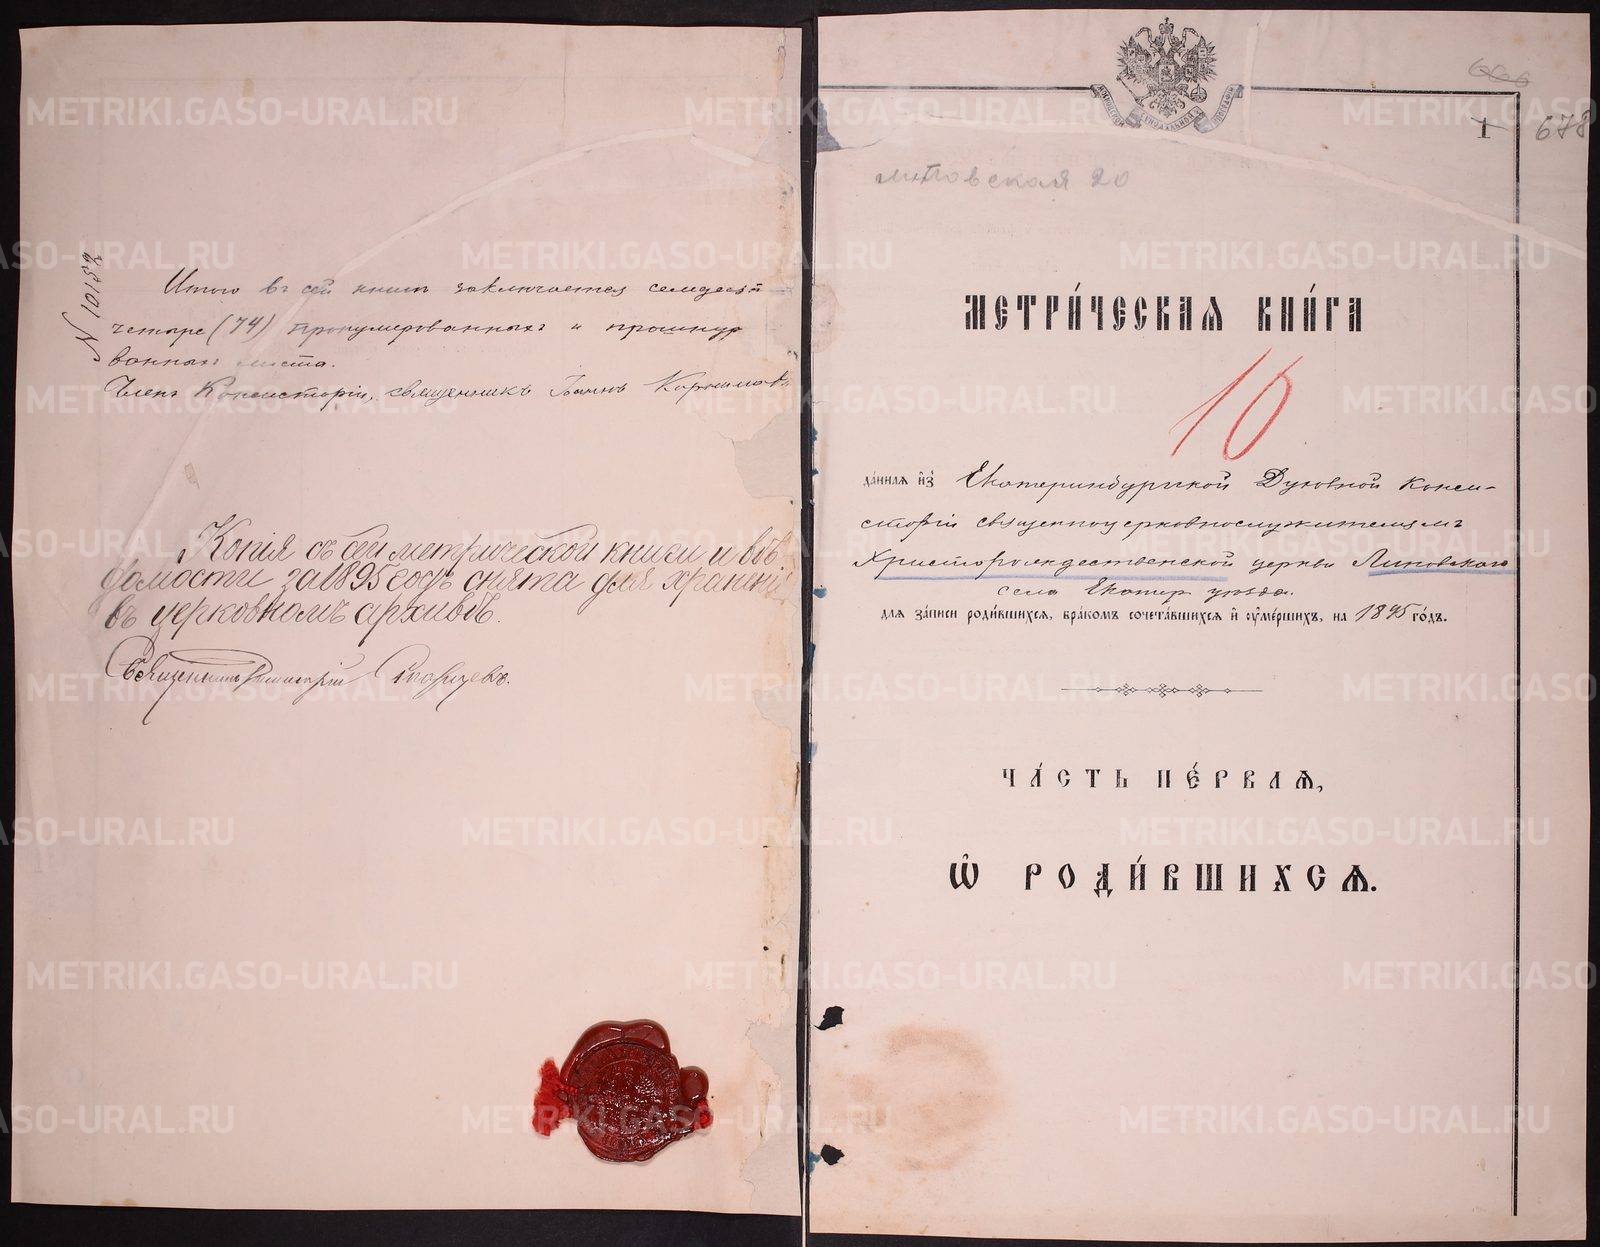 N 10152
Итого въ сей книгѣ заключается семдесятъ
четыре (74) пронумерованныхъ и прошнуро
ванныхъ листа.
Членъ Консисторіи, священникъ Іоаннъ
Копія съ сей метрической книги и вѣ
домости за 1895 годъ снята для храненія
въ церковномъ архивѣ.
Священникъ Старцевъ.
1
678
липовская 20
МЕТРИ́ЧЕСКАѦ КНИ́ГА
10
да́ннаѧ и҆з̾ Екатеринбургской Духовной Конси-
сторіи священноцерковнослужителямъ
Христорождественской церкви Липовского
села Екатер. уѣзда.
длѧ за́писи роди́вшихсѧ, бра́комъ сочета́вшихсѧ и҆ ᲂу҆ме́ршихъ, на 1895 го́дъ.
ЧА́СТЬ ПЕ́РВАѦ,
Ѽ РОДИ́ВШИХСѦ.
METRIKI.GASO-URAL.RU